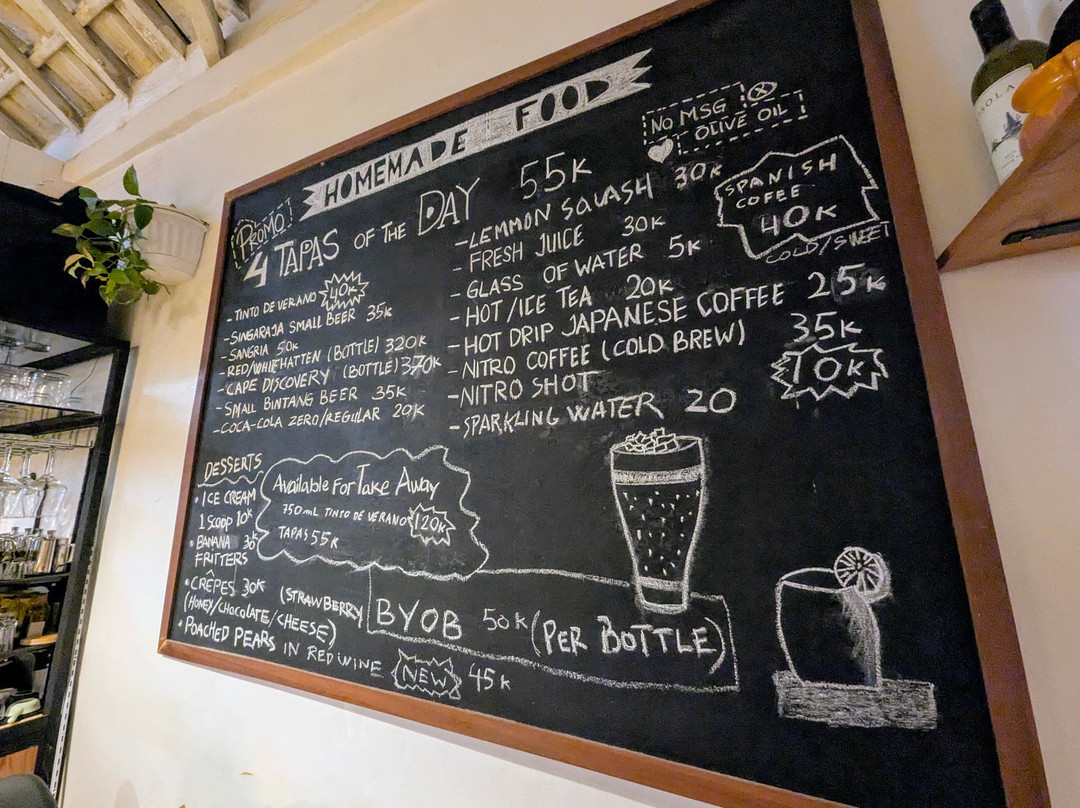 HOMEMADE FOOD
NO MSG
OLIVE OIL
¡PROMO!
4 TAPAS OF THE DAY 55K
- TINTO DE VERANO 40K
- SINGARAJA SMALL BEER 35K
- SANGRIA 50K
- RED/WHITE HATTEN (BOTTLE) 320K
- CAPE DISCOVERY (BOTTLE) 370K
- SMALL BINTANG BEER 35K
- COCA-COLA ZERO/REGULAR 20K
- LEMMON SQUASH 30K
- FRESH JUICE 30K
- GLASS OF WATER 5K
- HOT/ICE TEA 20K
- HOT DRIP JAPANESE COFFEE 25K
- NITRO COFFEE (COLD BREW) 35K
- NITRO SHOT 10K
- SPARKLING WATER 20
SPANISH
COFEE
40K
COLD/SWEET
DESSERTS
• ICE CREAM
1 SCOOP 10K
• BANANA 30K
FRITTERS
• CRÊPES 30K (STRAWBERRY
(HONEY/CHOCOLATE/CHEESE)
• POACHED PEARS IN RED WINE NEW 45K
Available For Take Away
750mL TINTO DE VERANO 120K
TAPAS 55K
BYOB 50K (PER BOTTLE)